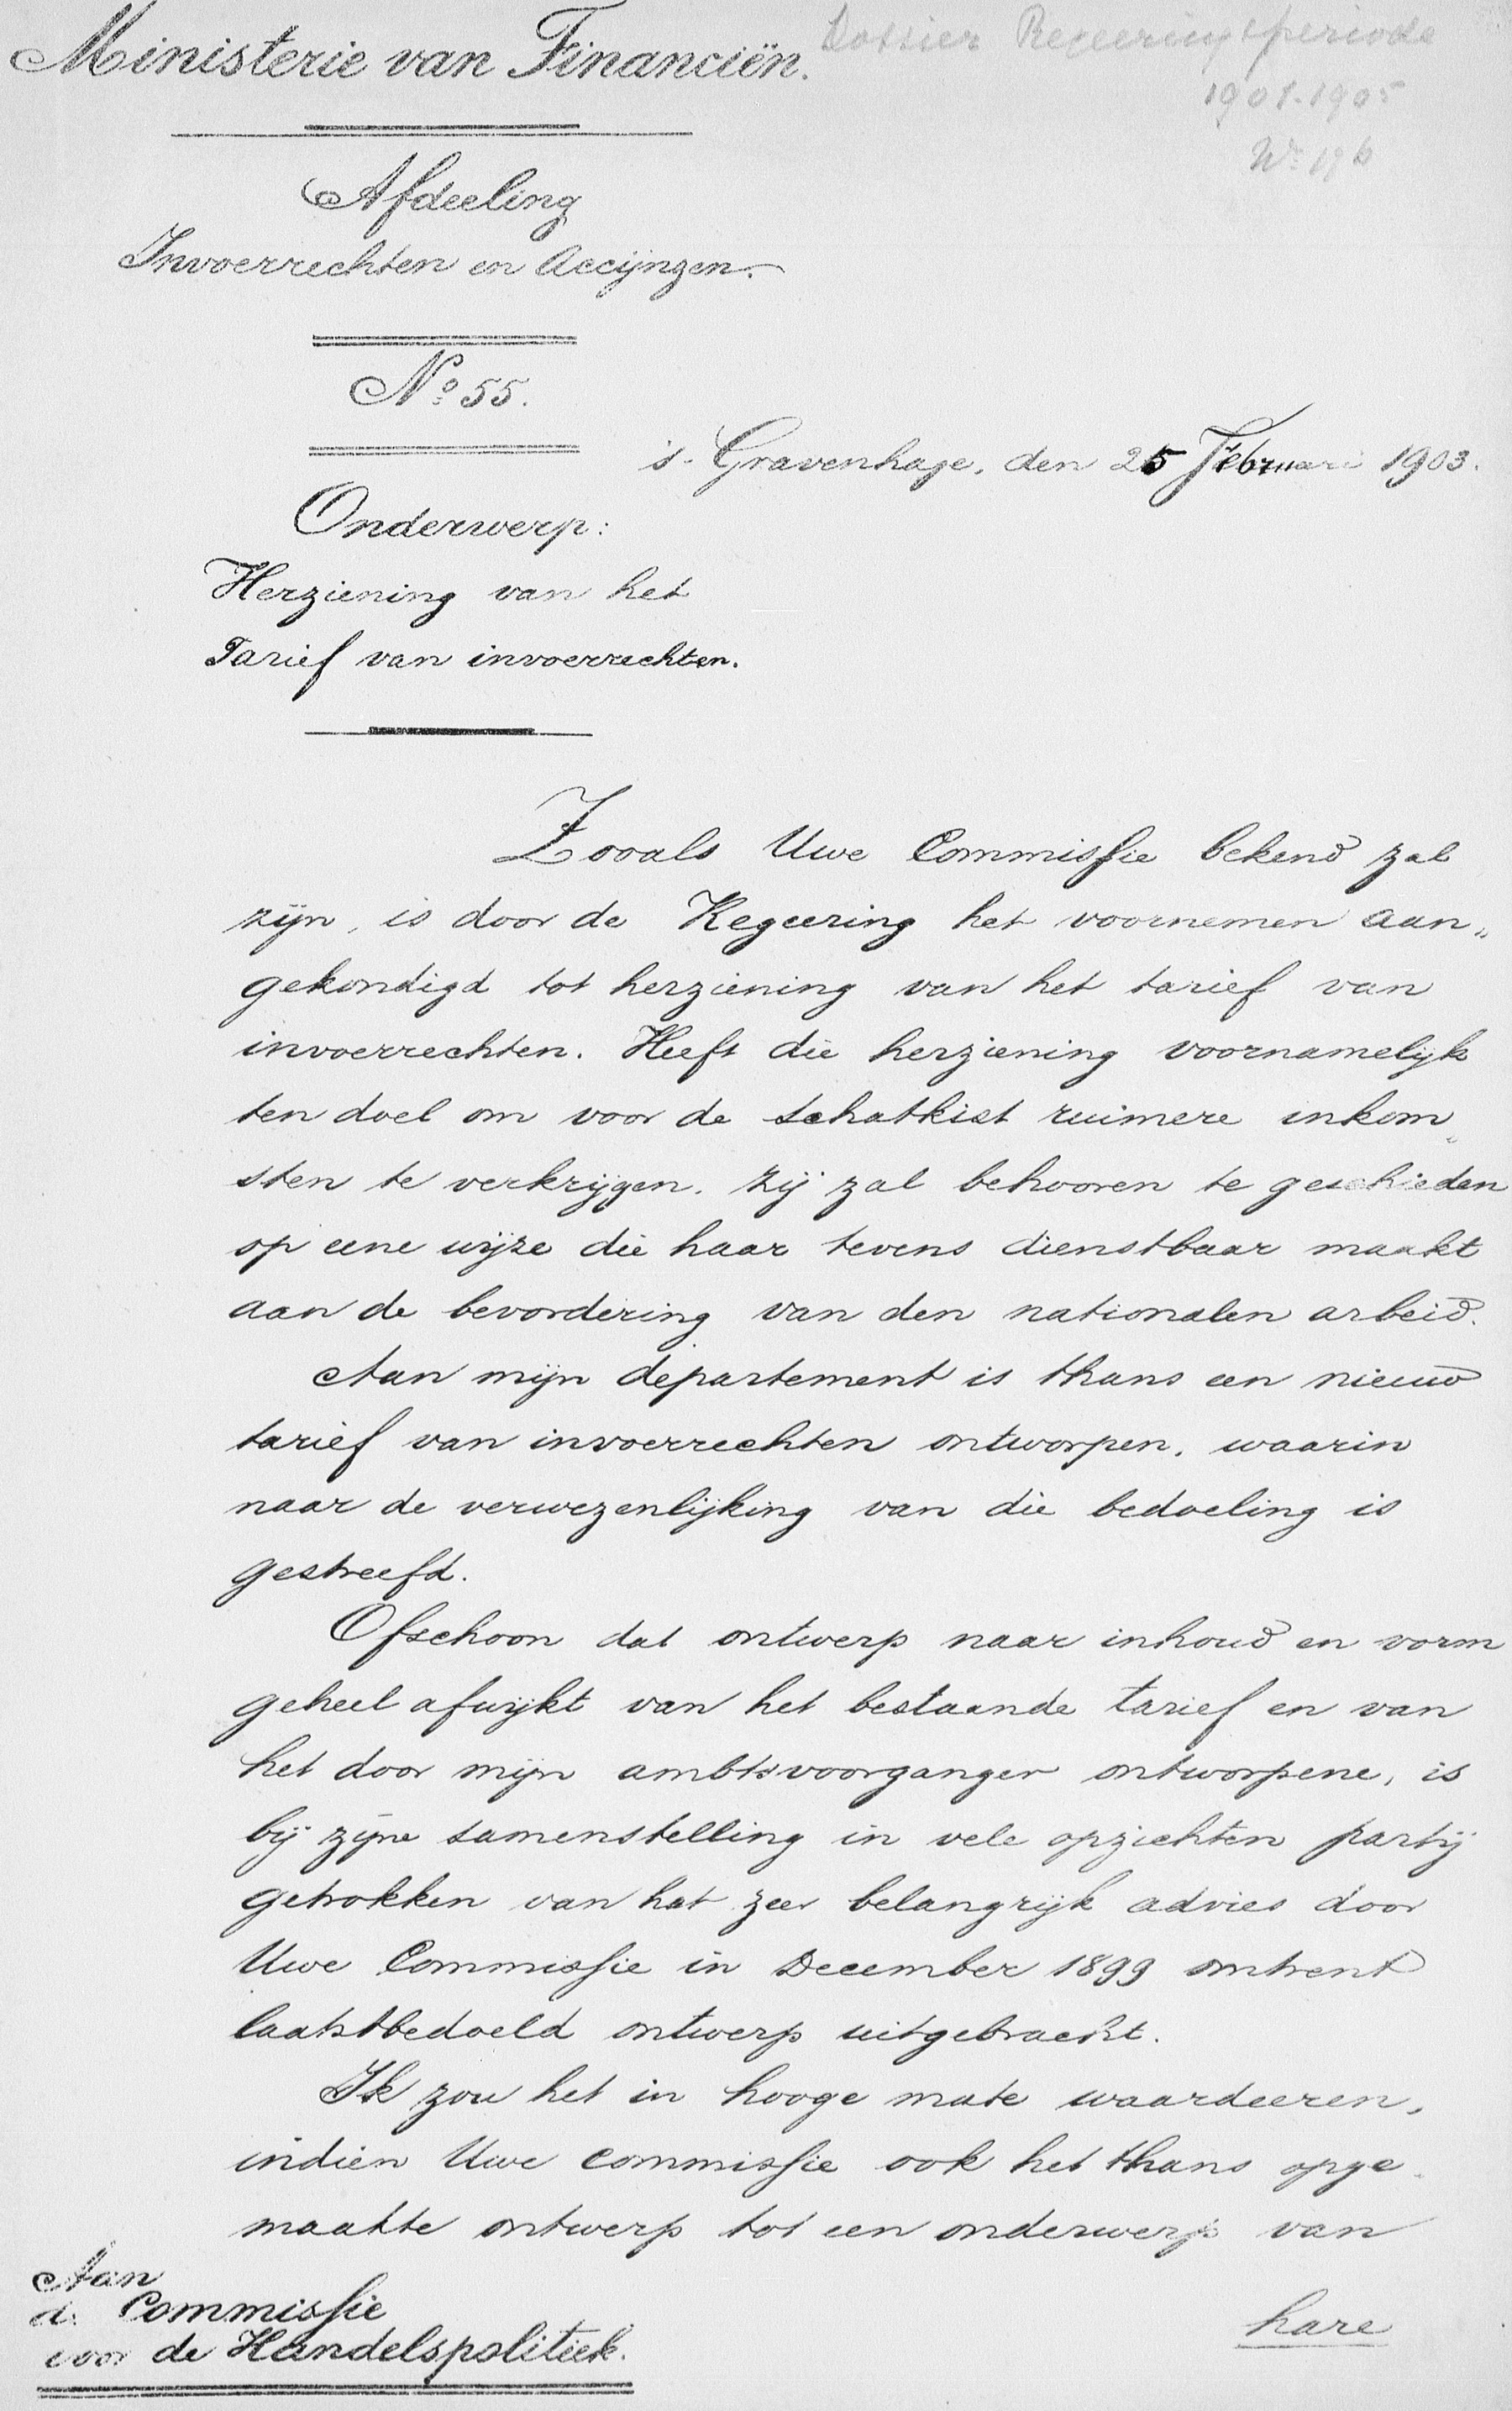 Ministerie van Financiën.
Dossier Regeeringsperiode
1901-1905
Afdeeling
Invoerrechten en Accijnzen.
No. 55.
's-Gravenhage, den 25 Februari 1903.
Onderwerp:
Herziening van het
Tarief van invoerrechten.
Zooals Uwe Commissie bekend zal
zijn, is door de Regeering het voornemen aan„
gekondigd tot herziening van het tarief van
invoerrechten. Heeft die herziening voornamelijk
ten doel om voor de schatkist ruimere inkom„
sten te verkrijgen. zij zal behooren te geschieden
op eene wijze die haar tevens dienstbaar maakt
aan de bevordering van den nationalen arbeid.
Aan mijn departement is thans een nieuw
tarief van invoerrechten ontworpen, waarin
naar de verwezenlijking van die bedoeling is
gestreefd.
Ofschoon dat ontwerp naar inhoud en vorm
geheel afwijkt van het bestaande tarief en van
het door mijn ambtsvoorganger ontworpene, is
bij zijne samenstelling in vele opzichten partij
getrokken van het zeer belangrijk advies door
Uwe Commissie in December 1899 omtrent
laatstbedoeld ontwerp uitgebracht.
Ik zou het in hooge mate waardeeren,
indien Uwe Commissie ook het thans opge„
maakte ontwerp tot een onderwerp van
hare
Aan
de Commissie
voor de Handelspolitiek.